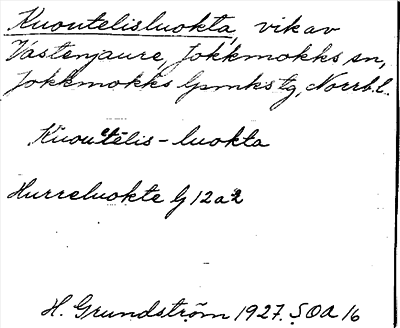 Kuoutelisluokta, vik av
Västenjaure, Jokkmokks sn,
Jokkmokks lpmks tg, Norrb. l.
Kuoutēlis - luokta
Hurreluokte G 12 a 2
H. Grundström 1927. SOA 16